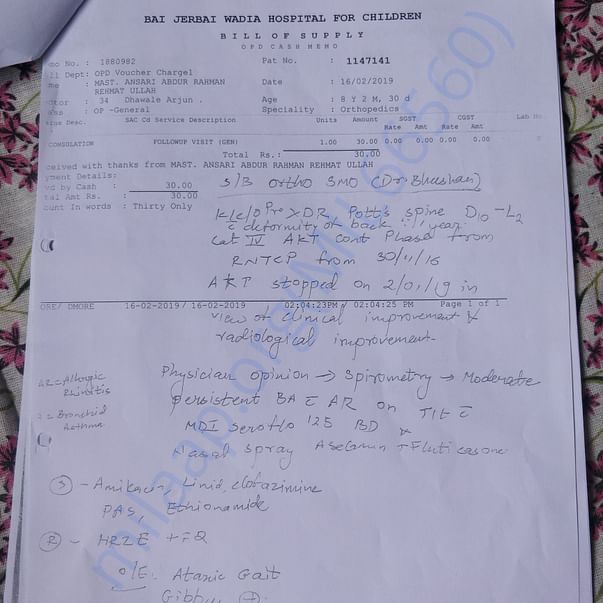 BAI JERBAI WADIA HOSPITAL FOR CHILDREN
BILL OF SUPPLY
OPD CASH MEMO
mo No. : 1880982 Pat No. : 1147141
ll Dept: OPD Voucher Chargel
me : MAST. ANSARI ABDUR RAHMAN REHMAT ULLAH Date : 16/02/2019
ctor : 34 Dhawale Arjun . Age : 8 Y 2 M, 30 d
ass : OP -General Speciality : Orthopedics
SAC Cd Service Description Units Amount SGST CGST Lab No
Rate Amt Rate Amt
CONSULATION FOLLOWUP VISIT (GEN) 1.00 30.00 0.00 0.00 0.00 0.00
Total Rs.: 30.00
ceived with thanks from MAST. ANSARI ABDUR RAHMAN REHMAT ULLAH
yment Details:
vd by Cash : 30.00
tal Amt Rs. : 30.00
ount In words : Thirty Only
S/B Ortho SMO (Dr. Bhushan)
K/c/o Pre XDR Pott's spine D10-L2
c̄ deformity of back
Cat IV AKT cont Phase from
RNTCP from 30/11/16
AKT stopped on 2/01/19 in
ORE/ DMORE 16-02-2019/ 16-02-2019 02:04:23PM / 02:04:25 PM Page 1 of 1
view of clinical improvement &
radiological improvement.
Physician opinion → Spirometry → Moderate
persistent BA c̄ AR on
MDI seroflo 125 BD
Nasal spray + Fluticasone
AR = Allergic
Rhinitis
= Bronchial
Asthma
(S) - Amikacin, Linid, clofazimine
PAS, Ethionamide
(R) - HRZE + FQ
O/E: Ataxic Gait
Gibbus (+)
milaap.org